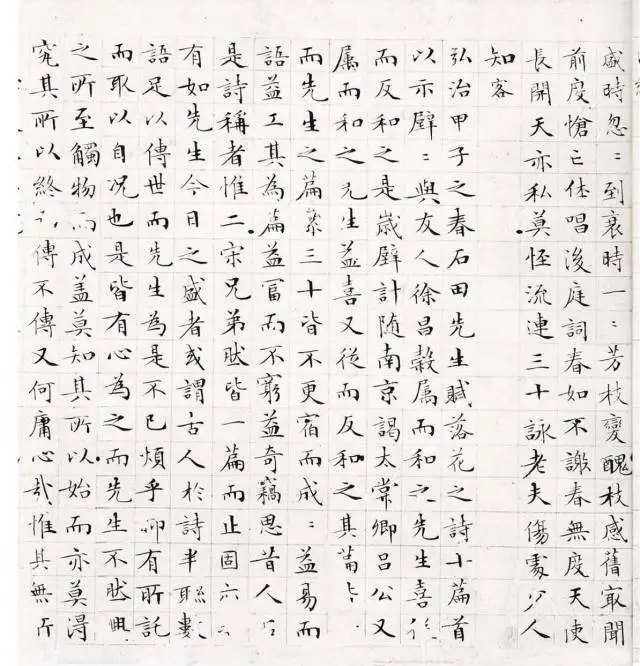 盛時忽〻到衰時一〻芳枝變醜枝感舊敢聞
前度愴亡休唱後庭詞春如不謝春無度天使
長開天亦私莫怪流連三十詠老夫傷處少人
知客
弘治甲子之春石田先生賦落花之詩十篇首
以示璧〻與友人徐昌穀属而和之先生喜從
而反和之是歲璧計随南京謁太常卿呂公又
属而和之先生益喜又從而反和之其篇
而先生之篇累三十皆不更宿而成〻益易而
語益工其為篇益富而不窮益奇竊思昔人
是詩稱者惟二宋兄弟然皆一篇而止固
有如先生今日之盛者或謂古人於詩半聯數
語足以傳世而先生為是不已煩乎抑有所託
而取以自况也是皆有心為之而先生不然興
之所至觸物而成盖莫知其所以始而亦莫得
究其所以終傳不傳又何庸心哉惟其無所